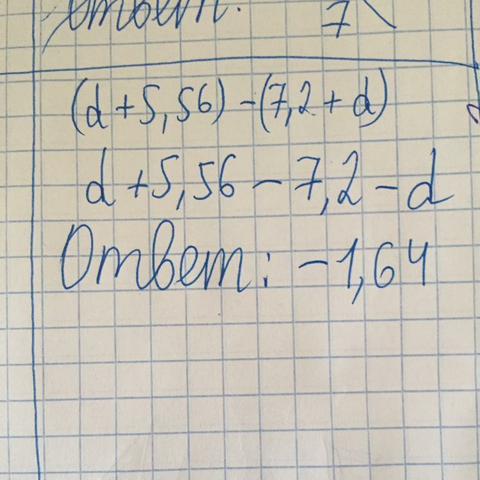 Ответ: 7
(d+5,56)-(7,2+d)
d+5,56-7,2-d
Ответ: -1,64